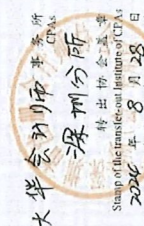 大华会计师 事务所
CPAs
深圳分所
转出协会盖章
Stamp of the transfer-out Institute of CPAs
2024 年 8 月 28 日